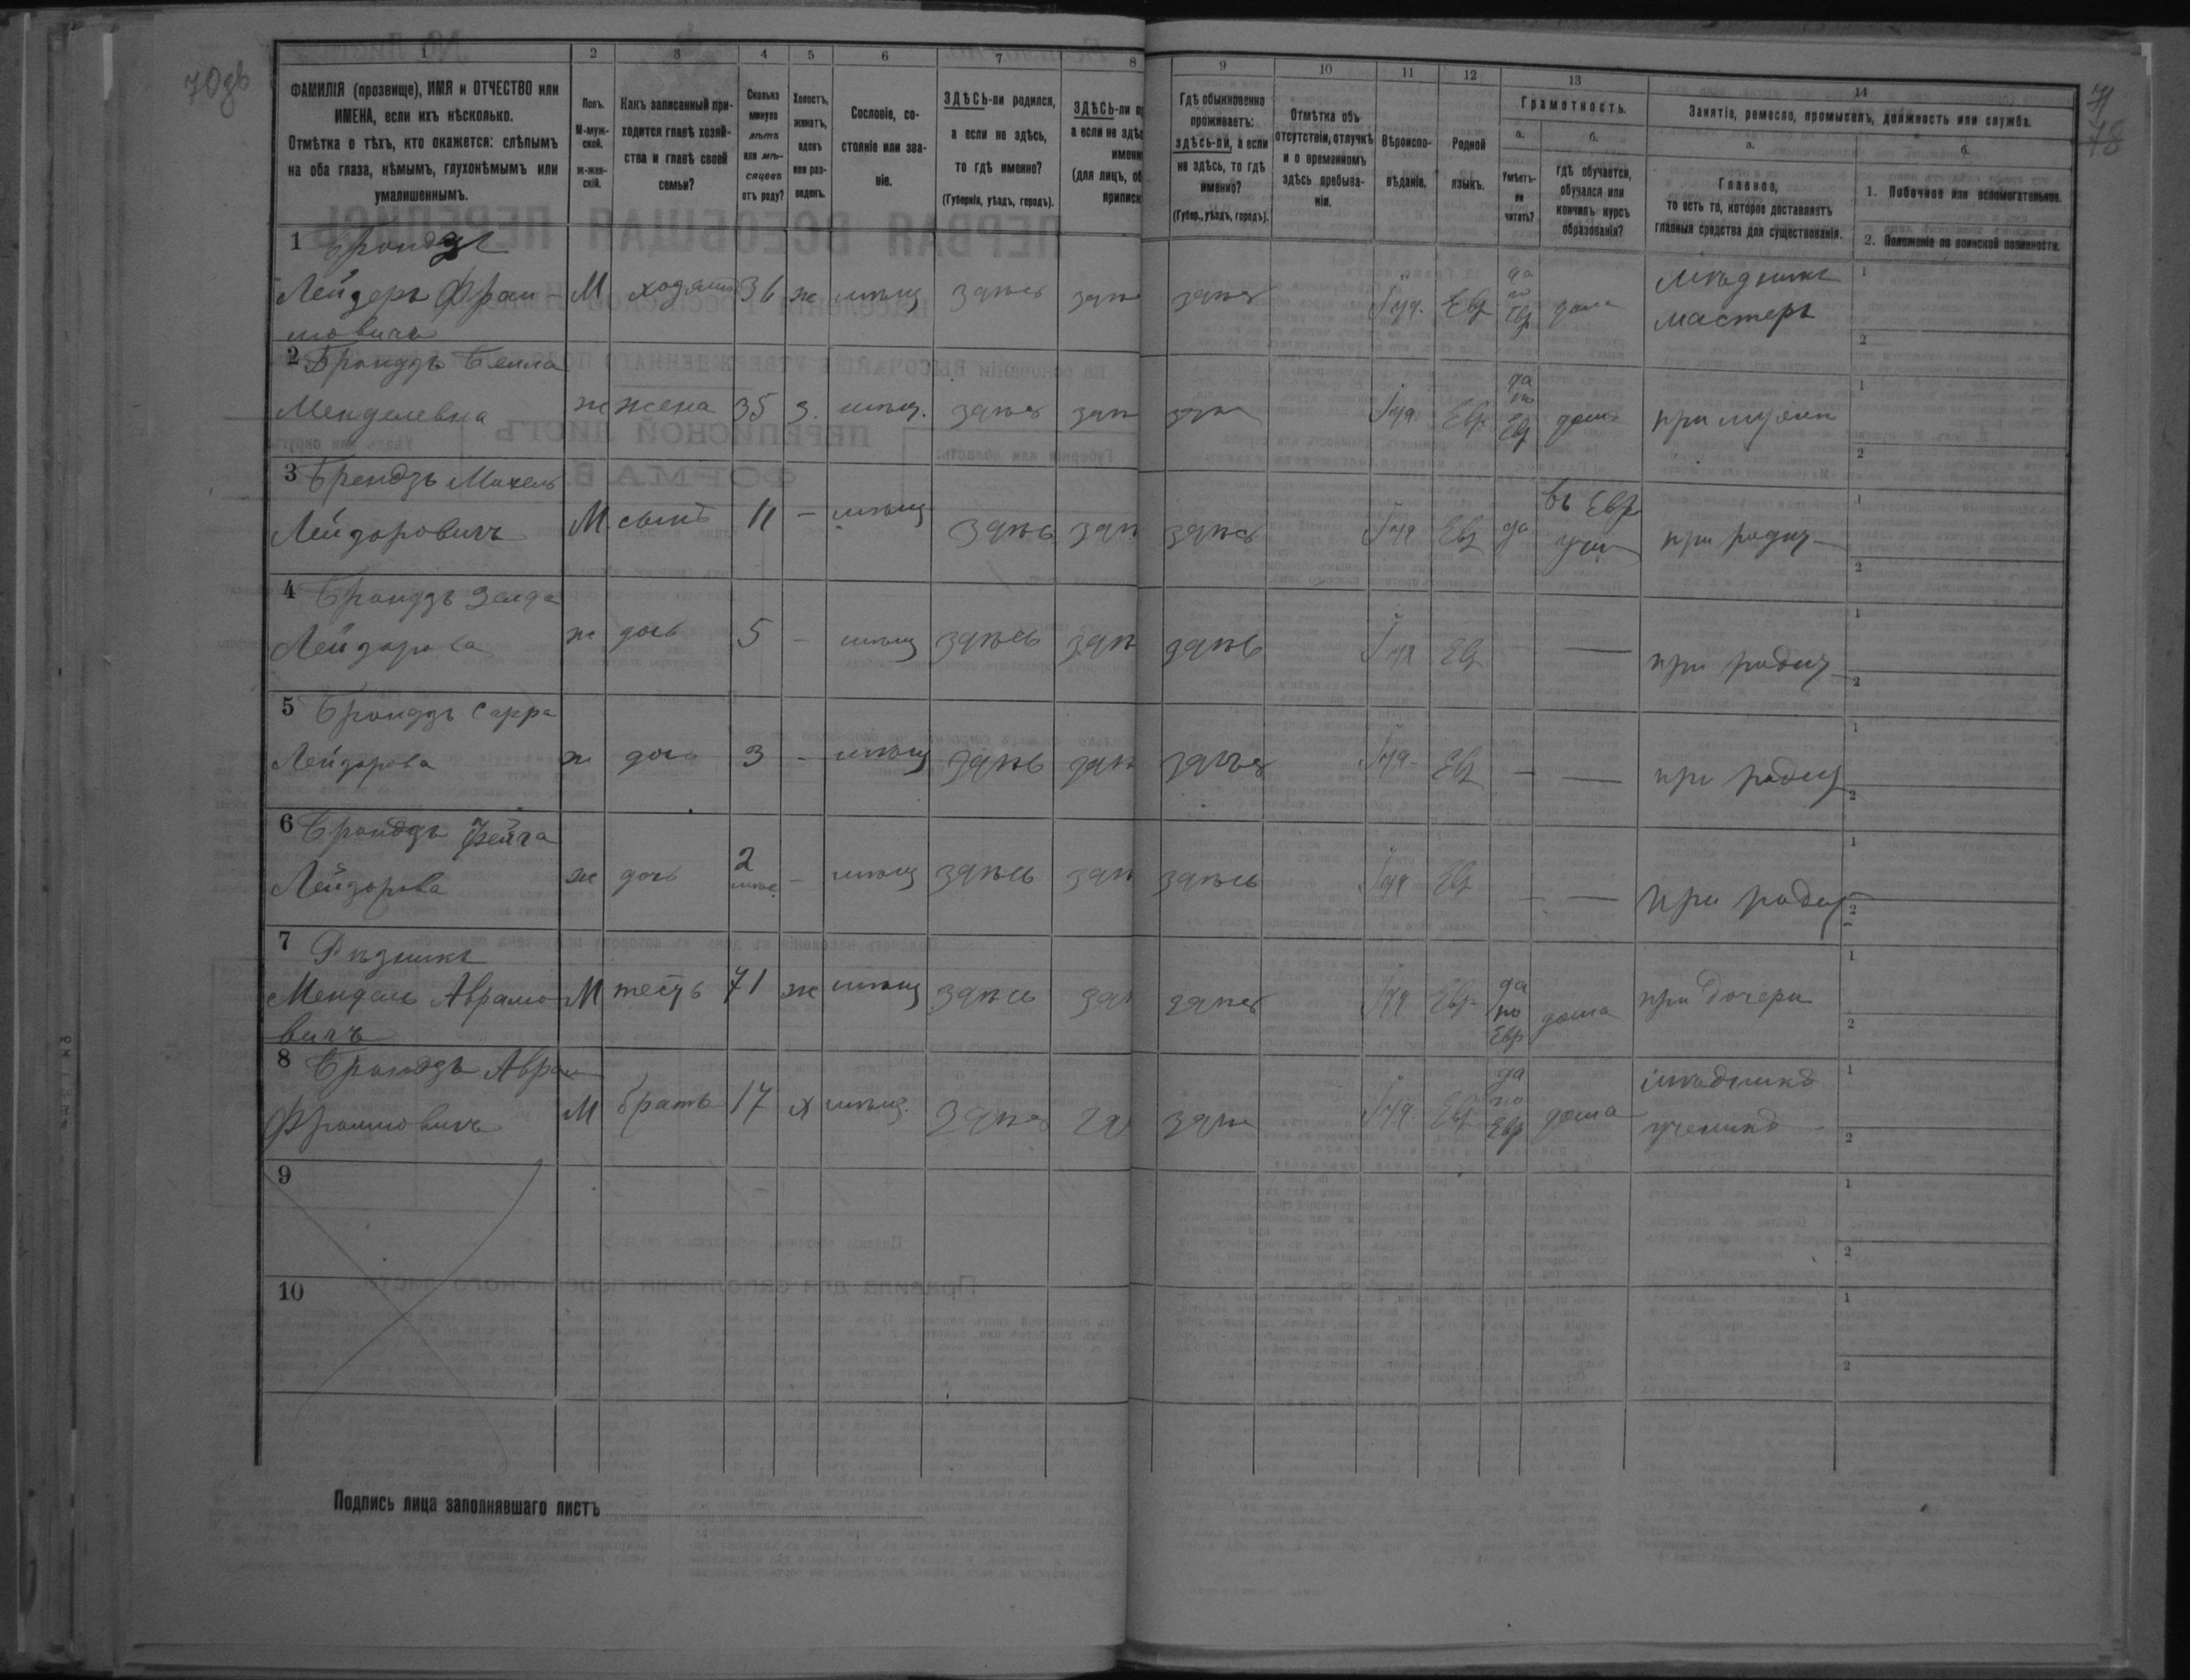 70об
71
78
1
2
3
4
5
6
7
8
9
10
11
12
13
14
ФАМИЛІЯ (прозвище), ИМЯ и ОТЧЕСТВО или
ИМЕНА, если ихъ нѣсколько.
Отмѣтка о тѣхъ, кто окажется: слѣпымъ
на оба глаза, нѣмымъ, глухонѣмымъ или
умалишеннымъ.
Полъ.
М-муж-
ской.
ж-жен-
скій.
Какъ записанный при-
ходится главѣ хозяй-
ства и главѣ своей
семьи?
Сколько
минуло
лѣтъ
или мѣ-
сяцевъ
отъ роду?
Холостъ,
женатъ,
вдовъ
или раз-
веденъ.
Сословіе, со-
стояніе или зва-
ніе.
ЗДѢСЬ-ли родился,
а если не здѣсь,
то гдѣ именно?
(Губернія, уѣздъ, городъ).
ЗДѢСЬ-ли пр
а если не здѣс
именн
(для лицъ, об
приписк
Гдѣ обыкновенно
проживаетъ:
здѣсь-ли, а если
не здѣсь, то гдѣ
именно?
(Губер., уѣздъ, городъ).
Отмѣтка объ
отсутствіи, отлучкѣ
и о временномъ
здѣсь пребыва-
ніи.
Вѣроиспо-
вѣданіе.
Родной
языкъ.
Грамотность.
а.
Умѣетъ-
ли
читать?
б.
гдѣ обучается,
обучался или
кончилъ курсъ
образованія?
Занятіе, ремесло, промыселъ, должность или служба.
а.
Главное,
то есть то, которое доставляетъ
главныя средства для существованія.
б.
1. Побочное или вспомогательное.
2. Положеніе по воинской повинности.
1 Брондзъ
Лейдеръ Фраи-
мовичъ
М
хозяинъ
36
ж
мѣщ
здѣсь
здѣ
здѣсь
Іуд.
Евр
да
по
Евр
дома
мѣдникъ
мастеръ
1
2
2 Брондзъ Бейла
Менделевна
ж
жена
35
з.
мѣщ.
здѣсь
здѣ
здѣ
Іуд.
Евр
да
по
Евр
дома
при мужѣ
1
2
3 Брендзъ Михель
Лейдоровичъ
М
сынъ
11
-
мѣщ
здѣсь
здѣ
здѣсь
Іуд
Евр
да
въ Евр
учи
при родит
1
2
4 Брондзъ Зелда
Лейдорова
ж
дочь
5
-
мѣщ
здѣсь
здѣ
здѣсь
Іуд
Евр
-
—
при родит
1
2
5 Брондзъ Сарра
Лейдорова
ж
дочь
3
-
мѣщ
здѣсь
здѣ
здѣсь
Іуд.
Евр
-
—
при родит
1
2
6 Брондзъ Фейга
Лейдорова
ж
дочь
2
мѣс.
-
мѣщ
здѣсь
здѣ
здѣсь
Іуд
Евр
-
—
при родит
1
2
7 Рѣзникъ
Мендель Аврамо-
вичъ
М
тесть
71
ж
мѣщ
здѣсь
зд
здѣсь
Іуд
Евр
да
по
Евр
дома
при дочери
1
2
8 Брондзъ Аврам
Фраимовичъ
М
братъ
17
х
мѣщ.
здѣсь
зд
здѣ
Іуд.
Евр
да
по
Евр
дома
мѣдникъ
ученикъ
1
2
9
1
2
10
1
2
Подпись лица заполнявшаго листъ